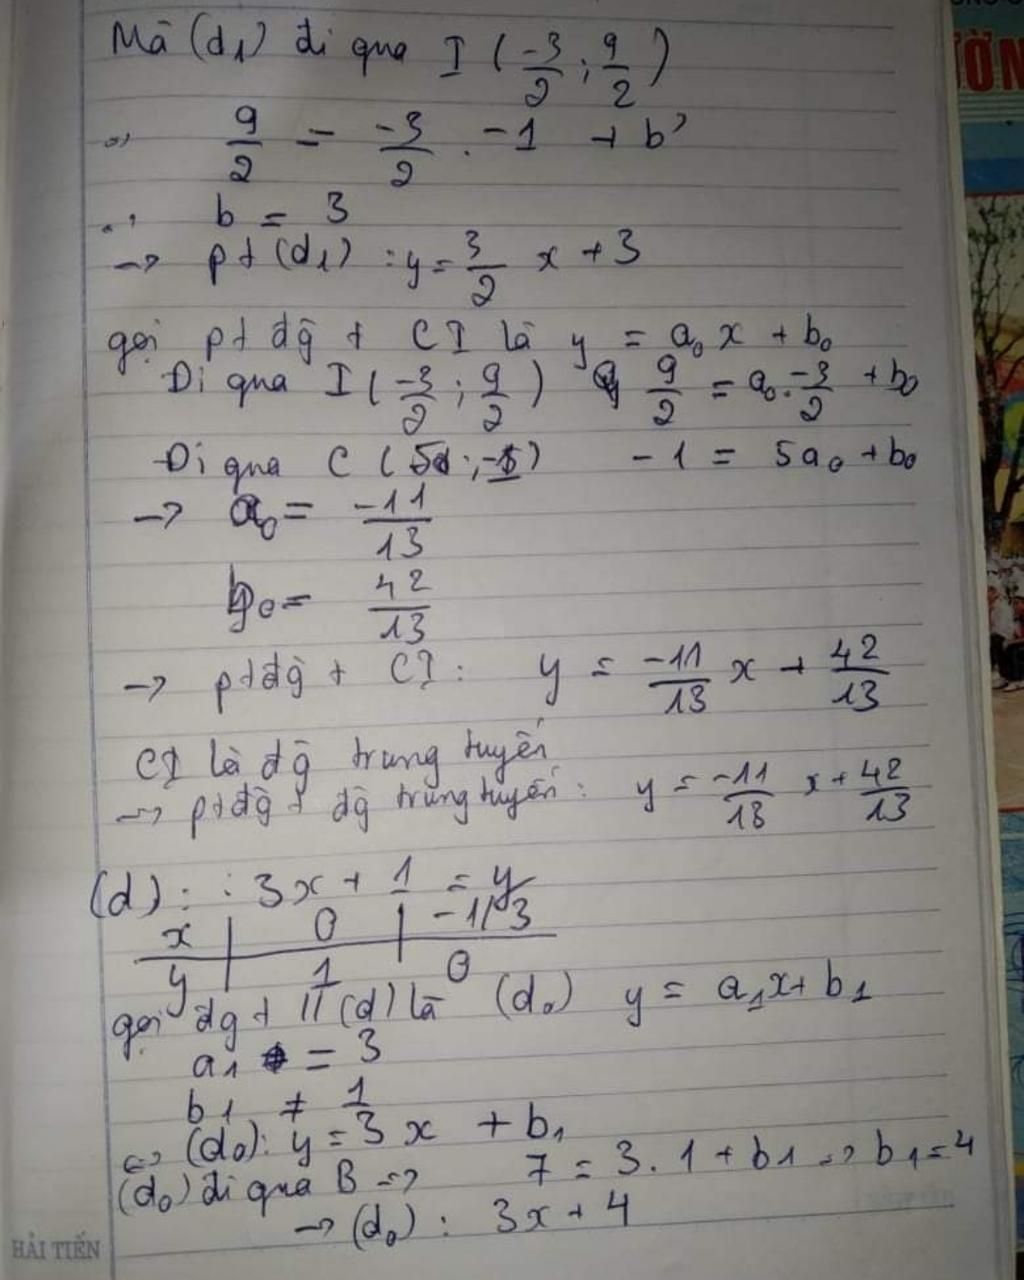 Mà (d₁) đi qua I (-3/2 ; 9/2)
=> 9/2 = -3/2 . -1 + b'
=> b = 3
-> pt (d₁) : y = 3/2 x + 3
gọi pt đg t CI là y = a₀ x + b₀
Đi qua I (-3/2 ; 9/2) 9/2 = a₀ . -3/2 + b₀
Đi qua C (5 ; -1) -1 = 5a₀ + b₀
-> a₀ = -11/13
b₀ = 42/13
-> ptđg t CI : y = -11/13 x + 42/13
CI là đg trung tuyến
-> ptđg t đg trung tuyến : y = -11/13 x + 42/13
(d) : : 3x + 1 = y
x | 0 | -1/3
y | 1 | 0
gọi đg t // (d) là (d₀) y = a₁x + b₁
a₁ = 3
b₁ ≠ 1
<=> (d₀): y = 3x + b₁
(d₀) đi qua B => 7 = 3.1 + b₁ => b₁ = 4
-> (d₀) : 3x + 4
HẢI TIẾN